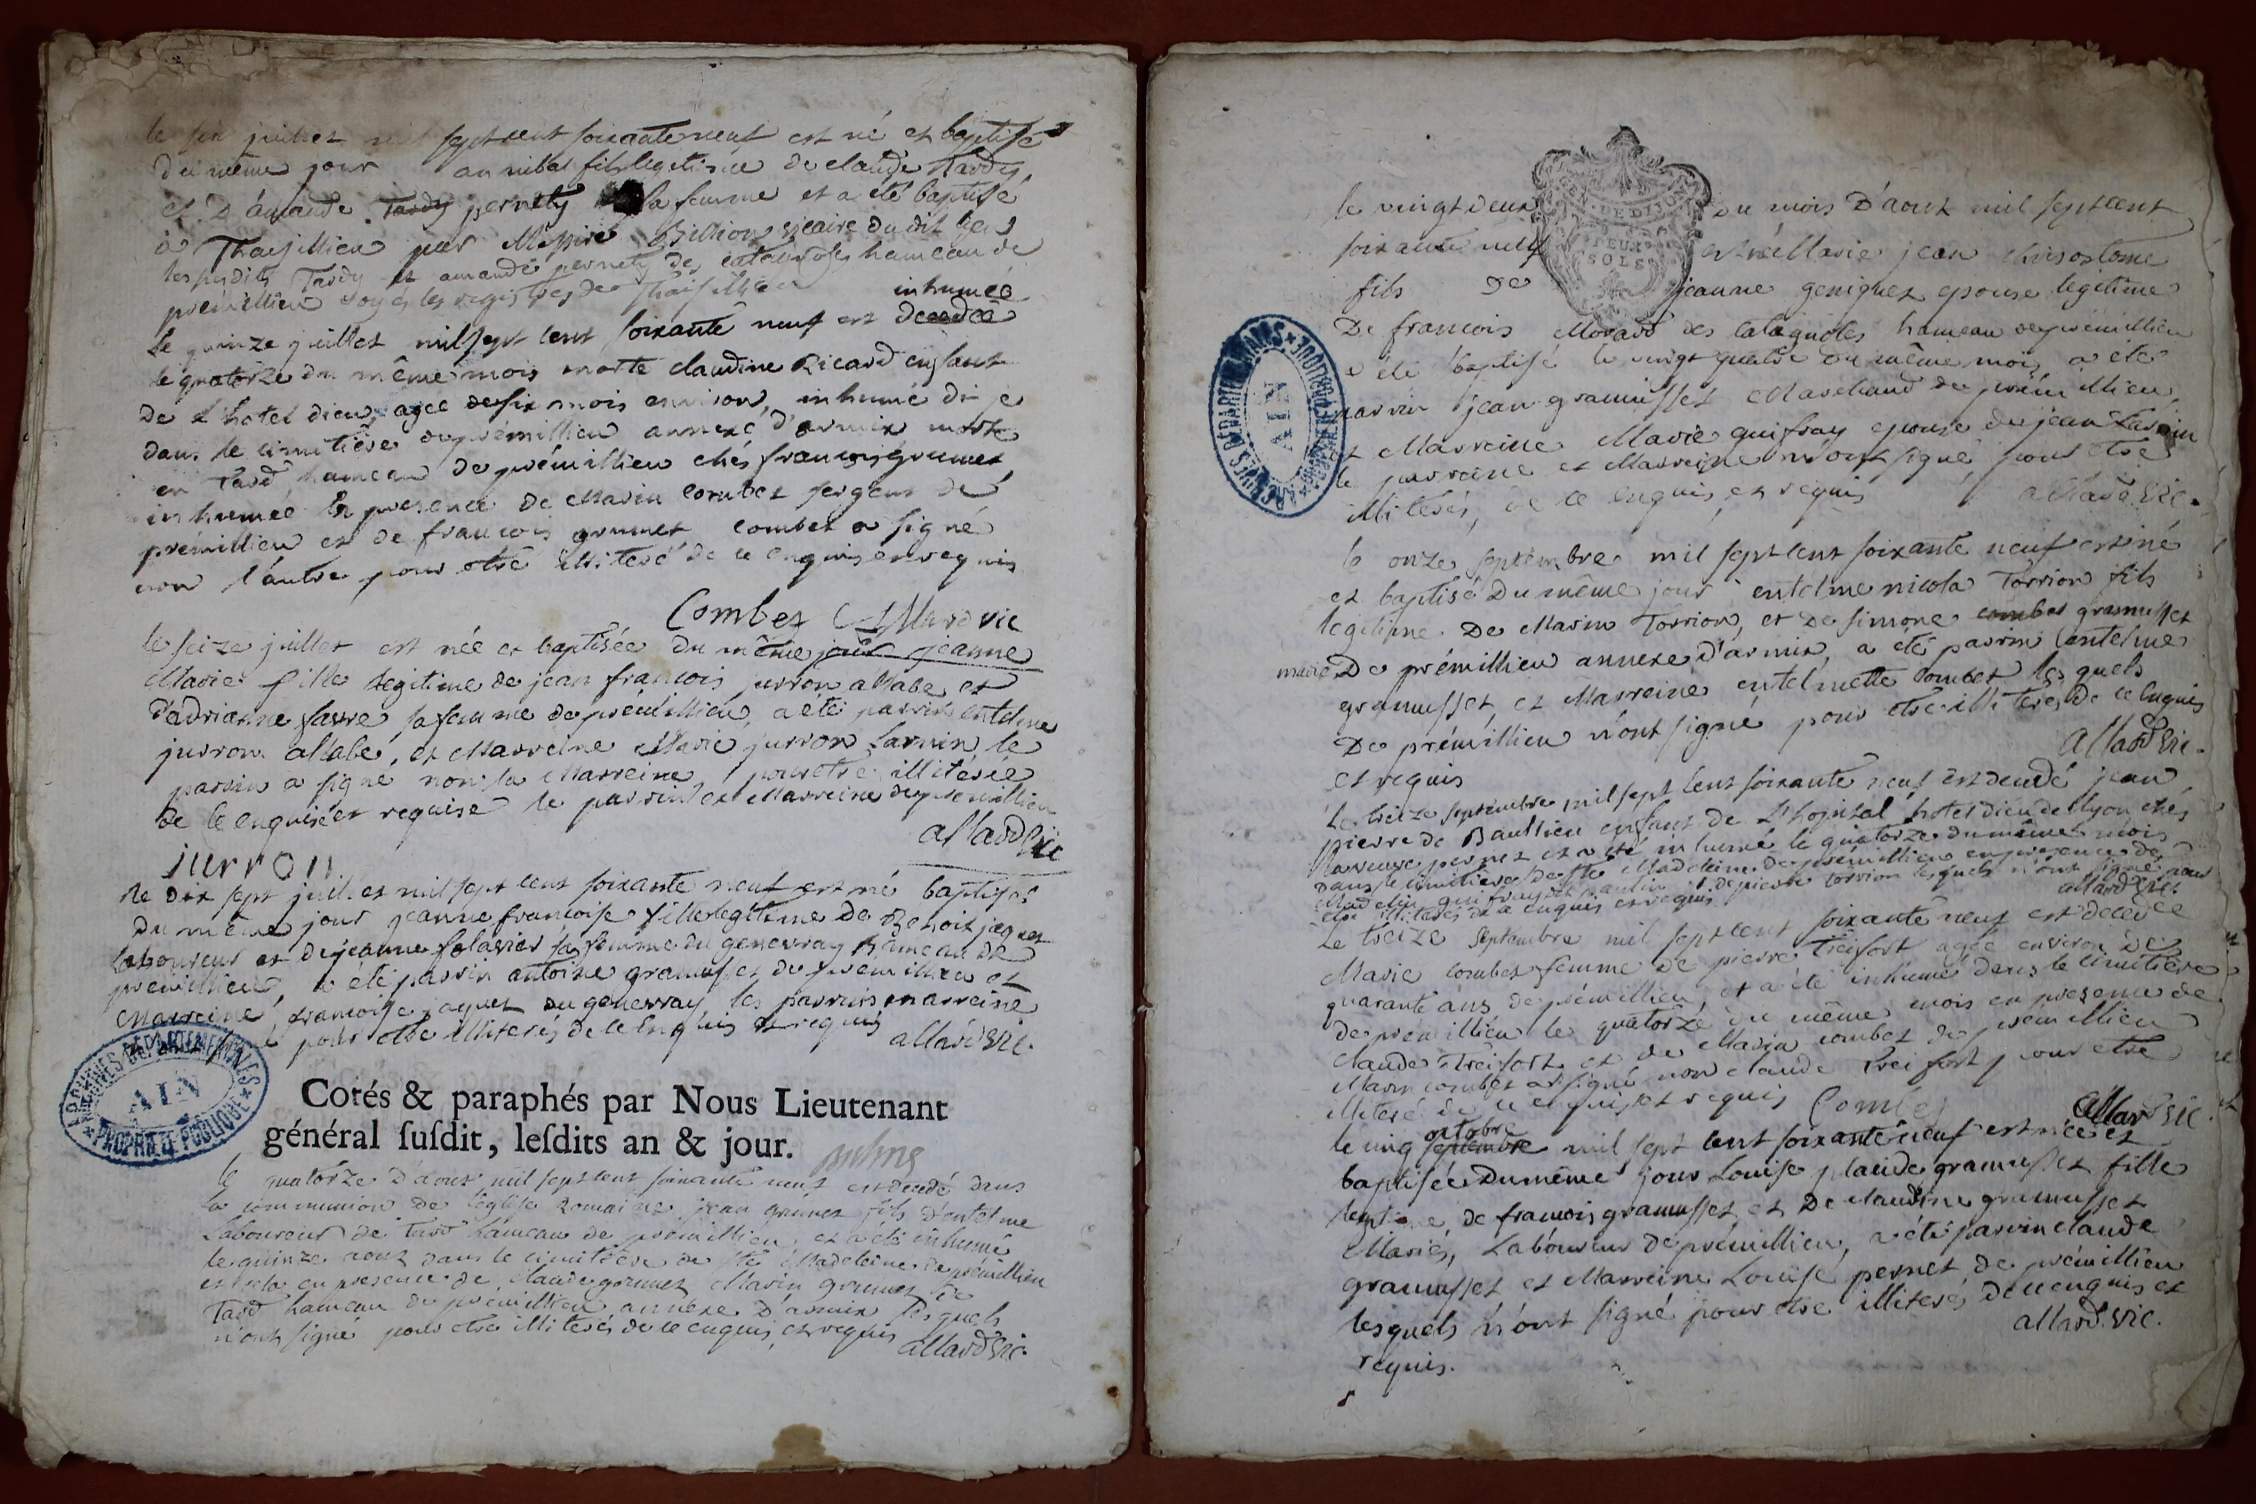 le six juillet mil sept cent soixante neuf est né et baptisé
du même jour annibal fils legitime de claude Tardy,
et d'amande Tardy pernety sa femme et a été baptisé
à Thaisillieu par Messire Billion vicaire du dit lieu
les susdits Tardy et amande pernety des hameau de
prémillieu voyes les registres de Thaisillieu
inhumée
le quinze juillet mil sept cent soixante neuf est decedée
le quatorze du même mois morte claudine Ricard enfant
de l'hotel dieu, agée de six mois environ, inhumé di je
dans le cimitière de prémillieu annexe d'armix morte
en Tard hameau de prémillieu chés francois grumet
inhumée en presence de Marin combet sergent de
prémillieu et de francois grumet combet a signé
non l'autre pour etre illiteré de ce enquis et requis
Combet Allard vic
le seize juillet est née et baptisée du même jour jeanne
Marie fille legitime de jean francois jurron allabe et
d'adrianne favre sa femme de prémillieu, a été parrin entelme
jurron allabe, et Marreine Marie jurron Larnin le
parrin a signé non la Marreine, pour etre illiterée
de ce enquise et requise le parrin et Marreine de prémillieu
allard vic
jurron
le dix sept juillet mil sept cent soixante neuf est né baptisée
du même jour jeanne francoise fille legitime de Benoit jaquet
laboureur et de jeanne sa femme du genevray hameau de
prémillieu, a été parrin antoine gramusset de prémillieu et
Marreine francoise jaquet du genevray les parrins marreine
pour etre illiterés de ce enquis et requis allard vic.
ARCHIVES DÉPARTEMENTALES AIN PROPRIÉTÉ PUBLIQUE
Cotés & paraphés par Nous Lieutenant
général ſuſdit, leſdits an & jour.
le quatorze d'aout mil sept cent soixante neuf est decedé dans
la communion de l'église Romaine jean grumet fils d'entelme
Laboureur de Tard hameau de prémillieu, et a été inhumé
le quinze aout dans le cimitière de ste Madeleine de prémillieu
en presence de claude grumet Marin grumet de
Tard hameau de prémillieu annexe d'armix lesquels
n'ont signé pour etre illiterés de ce enquis et requis
allard vic.
GEN. DE DIJON
DEUX
SOLS
le vingt deux du mois d'aout mil sept cent
soixante neuf est né Marie jean chrisostome
fils de jeanne geniquet epouse legitime
De francois Morard des catagnoles hameau de prémillieu
a été baptisé le vingt quatre du même mois, a été
parrin jean gramusset Marchand de prémillieu,
et Marreine Marie guifray epouse de jean Larnin
le parreine et Marreine n'ont signé pour etre
illiterés, de ce enquis et requis allard vic.
ARCHIVES DÉPARTEMENTALES AIN PROPRIÉTÉ PUBLIQUE
le onze septembre mil sept cent soixante neuf est né
et baptisé du même jour entelme nicola Torrion fils
legitime De Marin Torrion, et De simone combet gramusset
mariés De prémillieu annexe d'armix, a été parrin entelme
gramusset, et Marreine entelmette combet lesquels
De prémillieu n'ont signé pour etre illiterés de ce enquis
et requis allard vic.
le treize septembre mil sept cent soixante neuf est decedé jean
pierre de Baullieu enfant de L'hopital hotel dieu de Lyon chés
pernet et a été inhumé le quatorze du même mois
dans le cimitière de ste Madeleine de prémillieu en presence de
guifray et de pierre torrion lesquels n'ont signé pour
etre illiterés de ce enquis et requis allard vic.
le treize septembre mil sept cent soixante neuf est decedée
Marie combet femme de pierre Treifort agée environ de
quarante ans de prémillieu, et a été inhumé dans le cimitière
de prémillieu le quatorze du même mois en presence de
claude Treifort et de Marin combet de prémillieu
Marin combet a signé non claude Treifort pour etre
illiteré de ce enquis et requis Combet allard vic
octobre
le cinq septembre mil sept cent soixante neuf est née et
baptisée du même jour Louise placide gramusset fille
legitime de francois gramusset et De claudine gramusset
Mariés, Laboureur de prémillieu, a été parrin claude
gramusset et Marreine Louise pernet de prémillieu
lesquels n'ont signé pour etre illiterés de ce enquis et
requis. allard vic.